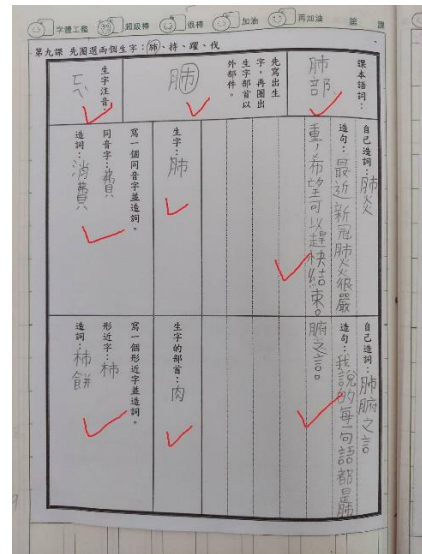 字體工整 超級棒 很棒 加油 再加油
第九課 先圈選兩個生字：肺、持、躍、伐
課本語詞：
肺部
先寫出生
字，再圈出
生字部首以
外部件。
肺
生字注音：
ㄈㄟˋ
自己造詞：肺炎
造句：最近新冠肺炎很嚴
重，希望可以趕快結束。
生字：肺
寫一個同音字並造詞。
同音字：費
造詞：消費
自己造詞：肺腑之言
造句：我說的每一句話都是肺
腑之言。
生字的部首：肉
寫一個形近字並造詞。
形近字：柿
造詞：柿餅